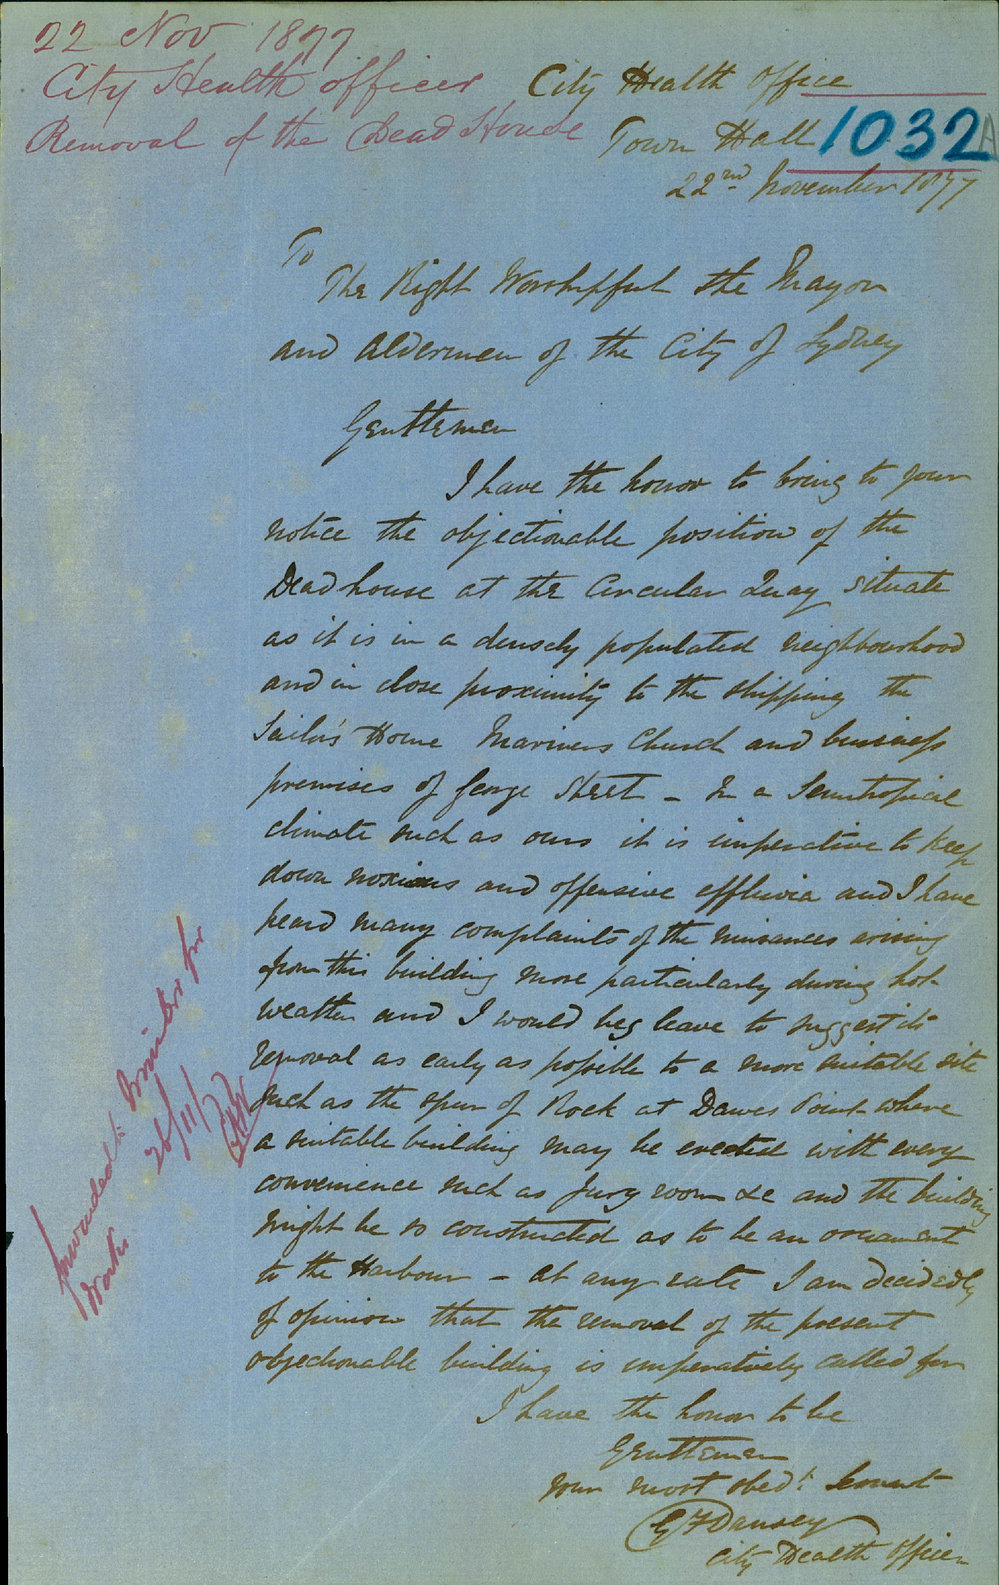 22 Nov 1877
City Health officer
Removal of the Dead House
City Health Office
Town Hall
1032A
22nd November 1877
To
The Right Worshipful the Mayor
and Aldermen of the City of Sydney
Gentlemen
I have the honor to bring to your
notice the objectionable position of the
Dead house at the Circular Quay situate
as it is in a densely populated neighbourhood
and in close proximity to the shipping the
Sailor's Home Mariners Church and business
premises of George Street - In a Semitropical
climate such as ours it is imperative to keep
down noxious and offensive effluvia and I have
heard many complaints of the nuisances arising
from this building more particularly during hot
weather and I would beg leave to suggest its
removal as early as possible to a more suitable site
such as the spur of Rock at Dawes Point where
a suitable building may be erected with every
convenience such as Jury room &c and the building
might be so constructed as to be an ornament
to the Harbour - at any rate I am decidedly
of opinion that the removal of the present
objectionable building is imperatively called for
I have the honor to be
Gentlemen
your most obedt. Servant
G F Dansey
City Health Officer
forwarded to Minister for
Works
26/11/77